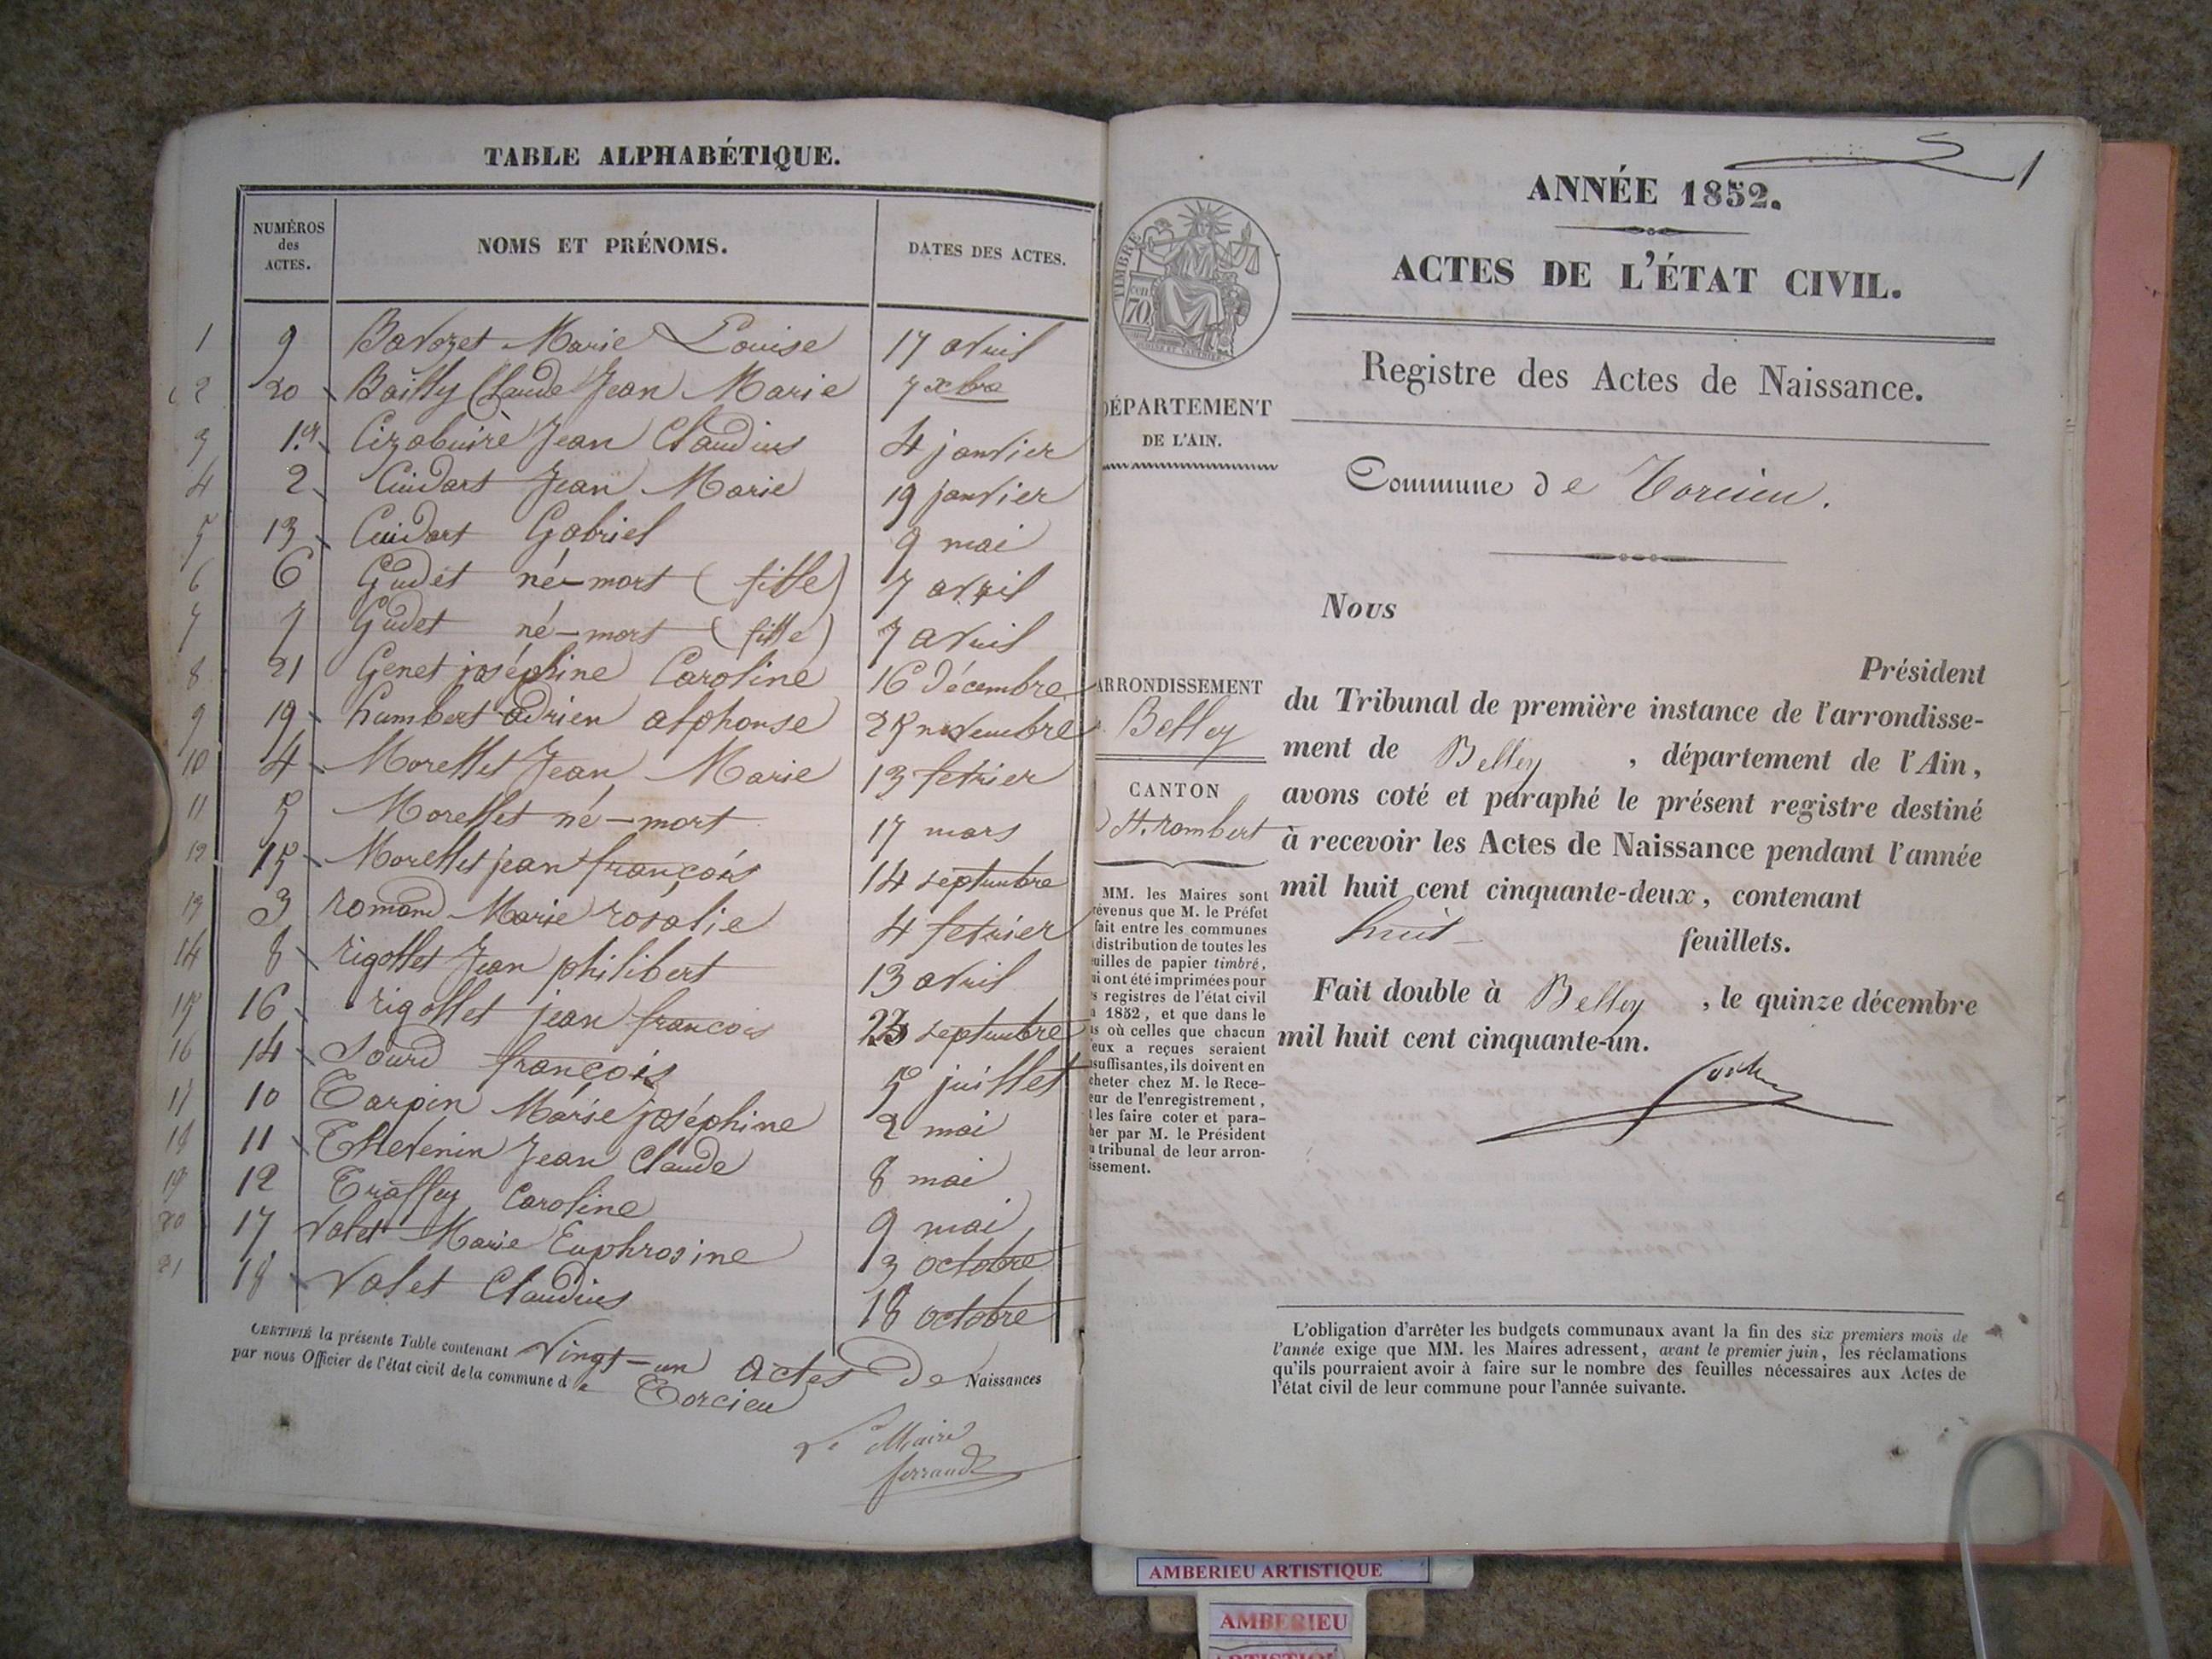 TABLE ALPHABÉTIQUE.
NUMÉROS des ACTES. NOMS ET PRÉNOMS. DATES DES ACTES.
1 9 Bavozet Marie Louise 17 avril
2 20 Bailly Claude Jean Marie 7 xbre
3 1.er Cizabuire Jean Claudius 4 janvier
4 2 Cuidart Jean Marie 19 janvier
5 13 Cuidart Gabriel 9 mai
6 6 Gudet né-mort (fille) 7 avril
7 7 Gudet né-mort (fille) 7 avril
8 21 Genet joséphine Caroline 16 décembre
9 19 humbert adrien alphonse 25 novembre
10 4 Morellet Jean Marie 13 fevrier
11 5 Morellet né-mort 17 mars
12 15 Morellet jean françois 14 septembre
13 3 romand Marie rosalie 4 fevrier
14 8 rigollet Jean philibert 13 avril
15 16 rigollet jean francois 23 septembre
16 14 Sourd françois 5 juillet
17 10 Tarpin Marie joséphine 2 mai
18 11 Thevenin Jean Claude 8 mai
19 12 Traffey Caroline 9 mai
20 17 Valet Marie Euphrosine 3 octobre
21 18 Valet Claudius 18 octobre
CERTIFIÉ la présente Table contenant Vingt-un actes de Naissances
par nous Officier de l'état civil de la commune de Torcieu
Le Maire
ferrand
1
ANNÉE 1852.
ACTES DE L'ÉTAT CIVIL.
TIMBRE
cen
70
Registre des Actes de Naissance.
DÉPARTEMENT
DE L'AIN.
Commune de Torcieu.
Nous
Président
du Tribunal de première instance de l'arrondisse-
ment de Belley, département de l'Ain,
avons coté et paraphé le présent registre destiné
à recevoir les Actes de Naissance pendant l'année
mil huit cent cinquante-deux, contenant
huit feuillets.
Fait double à Belley, le quinze décembre
mil huit cent cinquante-un.
ARRONDISSEMENT
Belley
CANTON
St. rambert
MM. les Maires sont
révenus que M. le Préfet
fait entre les communes
distribution de toutes les
euilles de papier timbré,
ui ont été imprimées pour
s registres de l'état civil
1852, et que dans le
as où celles que chacun
eux a reçues seraient
nsuffisantes, ils doivent en
cheter chez M. le Rece-
eur de l'enregistrement,
t les faire coter et para-
her par M. le Président
u tribunal de leur arron-
issement.
L'obligation d'arrêter les budgets communaux avant la fin des six premiers mois de
l'année exige que MM. les Maires adressent, avant le premier juin, les réclamations
qu'ils pourraient avoir à faire sur le nombre des feuilles nécessaires aux Actes de
l'état civil de leur commune pour l'année suivante.
AMBERIEU ARTISTIQUE
AMBERIEU
ARTISTIQUE